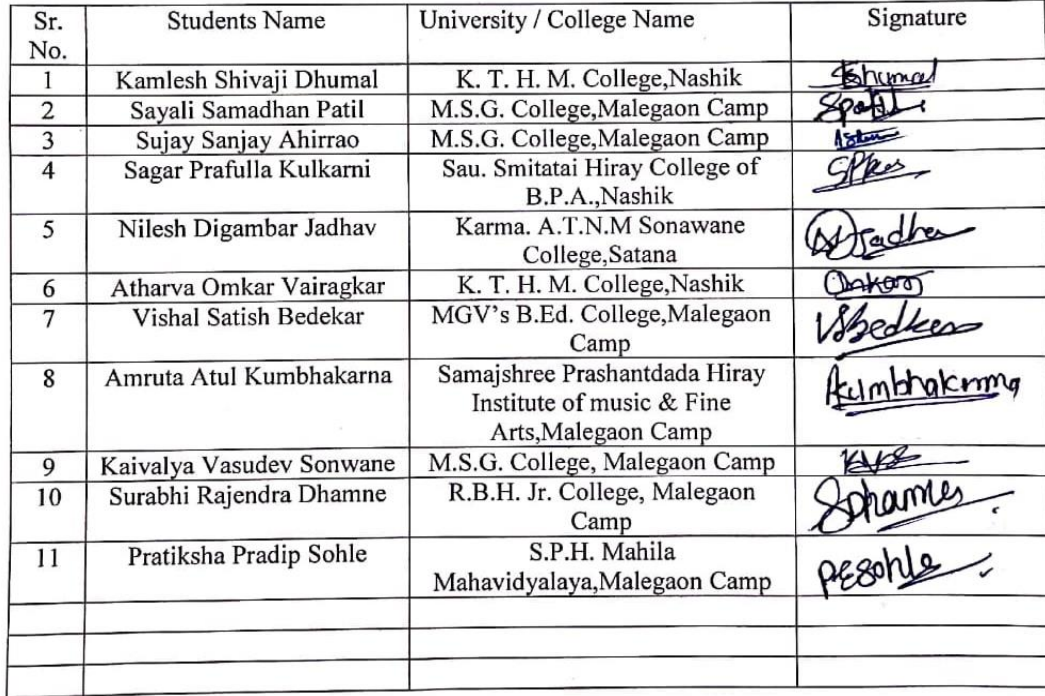 Sr. No. Students Name University / College Name Signature
1 Kamlesh Shivaji Dhumal K. T. H. M. College,Nashik
2 Sayali Samadhan Patil M.S.G. College,Malegaon Camp Spatil
3 Sujay Sanjay Ahirrao M.S.G. College,Malegaon Camp
4 Sagar Prafulla Kulkarni Sau. Smitatai Hiray College of
B.P.A.,Nashik
5 Nilesh Digambar Jadhav Karma. A.T.N.M Sonawane
College,Satana
6 Atharva Omkar Vairagkar K. T. H. M. College,Nashik
7 Vishal Satish Bedekar MGV's B.Ed. College,Malegaon
Camp
8 Amruta Atul Kumbhakarna Samajshree Prashantdada Hiray
Institute of music & Fine
Arts,Malegaon Camp
9 Kaivalya Vasudev Sonwane M.S.G. College, Malegaon Camp KVS
10 Surabhi Rajendra Dhamne R.B.H. Jr. College, Malegaon
Camp
11 Pratiksha Pradip Sohle S.P.H. Mahila
Mahavidyalaya,Malegaon Camp